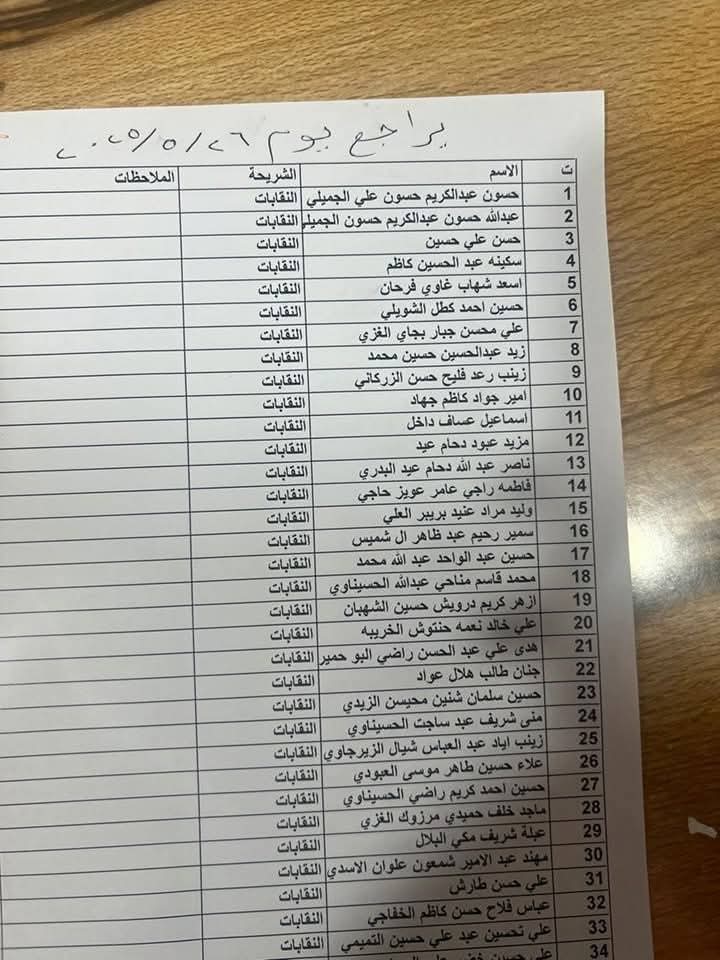 يراجع يوم ٢٠٢٥/٥/٢٦
ت الاسم الشريحة الملاحظات
1 حسون عبدالكريم حسون علي الجميلي النقابات
2 عبدالله حسون عبدالكريم حسون الجميلي النقابات
3 حسن علي حسين النقابات
4 سكينه عبد الحسين كاظم النقابات
5 اسعد شهاب غاوي فرحان النقابات
6 حسين احمد كطل الشويلي النقابات
7 علي محسن جبار بجاي الغزي النقابات
8 زيد عبدالحسين حسين محمد النقابات
9 زينب رعد فليح حسن الزركاني النقابات
10 امير جواد كاظم جهاد النقابات
11 اسماعيل عساف داخل النقابات
12 مزيد عبود دحام عيد النقابات
13 ناصر عبد الله دحام عيد البدري النقابات
14 فاطمه راجي عامر عويز حاجي النقابات
15 وليد مراد عنيد بريبر العلي النقابات
16 سمير رحيم عبد ظاهر ال شميس النقابات
17 حسين عبد الواحد عبد الله محمد النقابات
18 محمد قاسم مناحي عبدالله الحسيناوي النقابات
19 ازهر كريم درويش حسين الشهبان النقابات
20 علي خالد نعمه حنتوش الخريبه النقابات
21 هدى علي عبد الحسن راضي البو حمير النقابات
22 جنان طالب هلال عواد النقابات
23 حسين سلمان شنين محيسن الزيدي النقابات
24 منى شريف عبد ساجت الحسيناوي النقابات
25 زينب اياد عبد العباس شيال الزيرجاوي النقابات
26 علاء حسين طاهر موسى العبودي النقابات
27 حسين احمد كريم راضي الحسيناوي النقابات
28 ماجد خلف حميدي مرزوك الغزي النقابات
29 عبلة شريف مكي البلال النقابات
30 مهند عبد الامير شمعون علوان الاسدي النقابات
31 علي حسن طارش النقابات
32 عباس فلاح حسن كاظم الخفاجي النقابات
33 علي تحسين عبد علي حسين التميمي النقابات
34 علي حسين